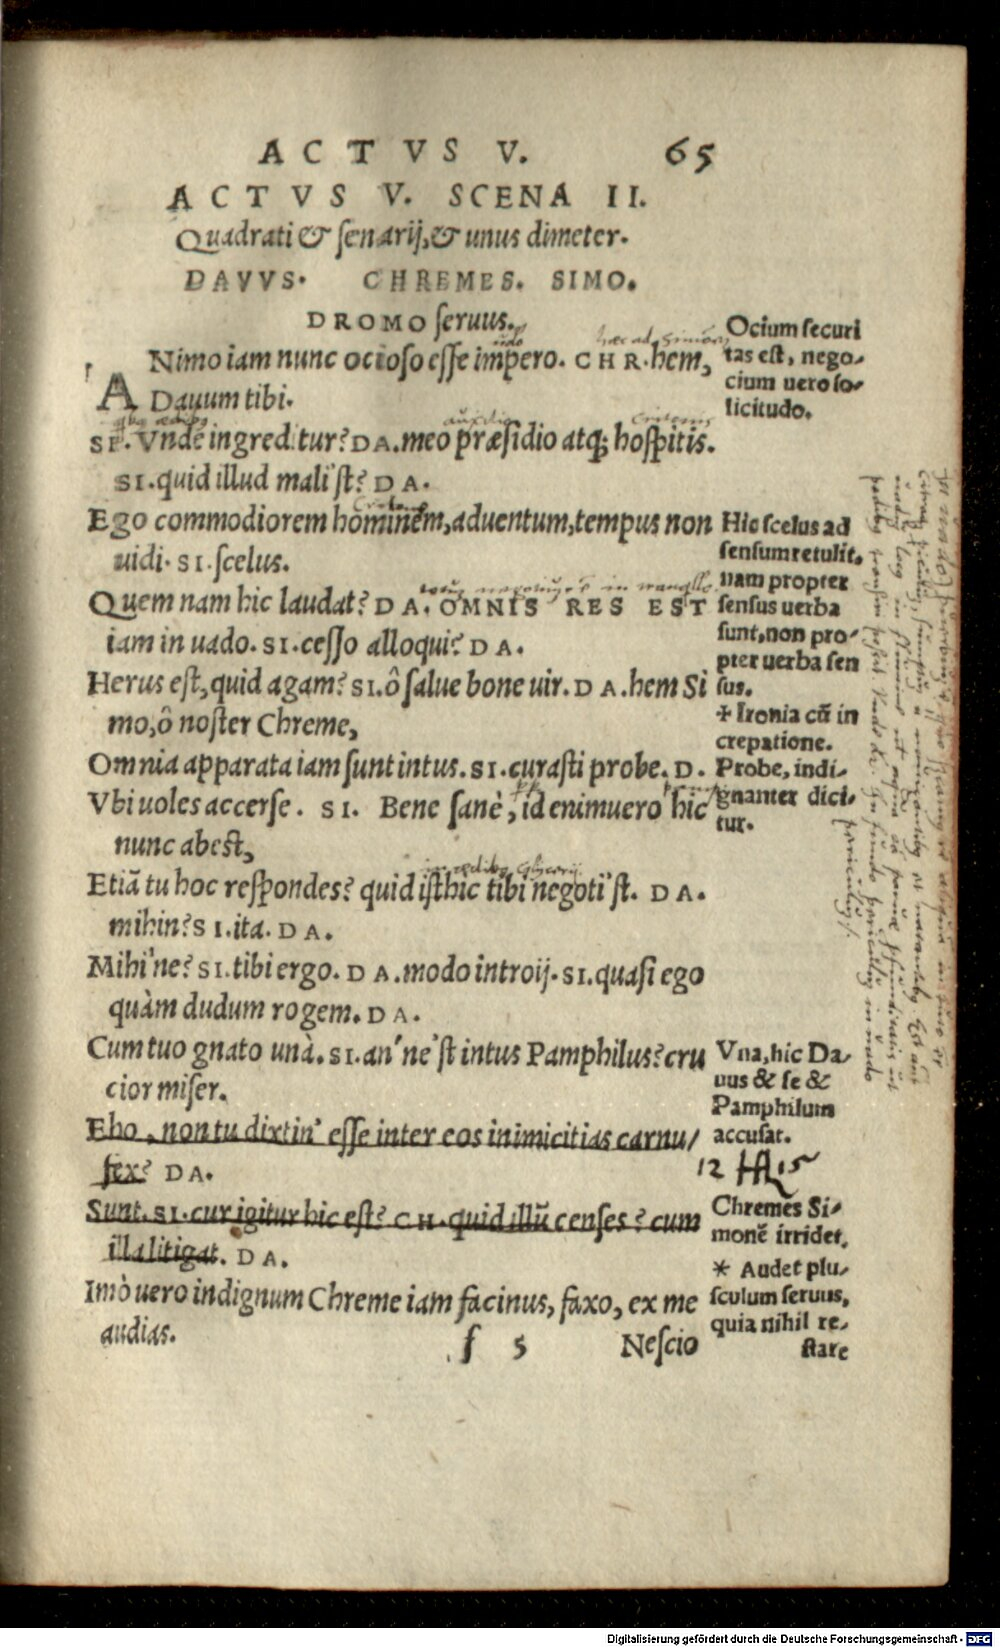 ACTVS V. 65
ACTVS V. SCENA II.
Quadrati & senarij, & unus dimeter.
DAVVS. CHREMES. SIMO.
DROMO seruus.
ANimo iam nunc ocioso esse impero. CHR. hem,
Dauum tibi.
SI. Vnde ingreditur? DA. meo præsidio atq; hospitis.
SI. quid illud mali'st? DA.
Ego commodiorem hominem, aduentum, tempus non
uidi. SI. scelus.
Quem nam hic laudat? DA. OMNIS RES EST
iam in uado. SI. cesso alloqui? DA.
Herus est, quid agam? SI. ô salue bone uir. DA. hem Si
mo, ô noster Chreme,
Omnia apparata iam sunt intus. SI. curasti probe. D.
Vbi uoles accerse. SI. Bene sanè, id enimuero hic
nunc abest,
Etiã tu hoc respondes? quid isthic tibi negoti'st. DA.
mihin? SI. ita. DA.
Mihi'ne? SI. tibi ergo. DA. modo introij. SI. quasi ego
quàm dudum rogem. DA.
Cum tuo gnato unà. SI. an'ne'st intus Pamphilus? cru
cior miser.
Eho, non tu dixtin' esse inter eos inimicitias carnu/
fex? DA.
Sunt. SI. cur igitur hic est? CH. quid illũ censes? cum
illa litigat. DA.
Imò uero indignum Chreme iam facinus, faxo, ex me
audias.
f 5 Nescio
Ocium securi
tas est, nego-
cium uero so-
licitudo.
Hic scelus ad
sensum retulit,
nam propter
sensus uerba
sunt, non pro-
pter uerba sen
sus.
+ Ironia cũ in
crepatione.
Probe, indi-
gnanter dici-
tur.
Vna, hic Da-
uus & se &
Pamphilum
accusat.
12 15
Chremes Si-
monẽ irridet.
* Audet plu-
sculum seruus,
quia nihil re-
stare
Digitalisierung gefördert durch die Deutsche Forschungsgemeinschaft - DFG